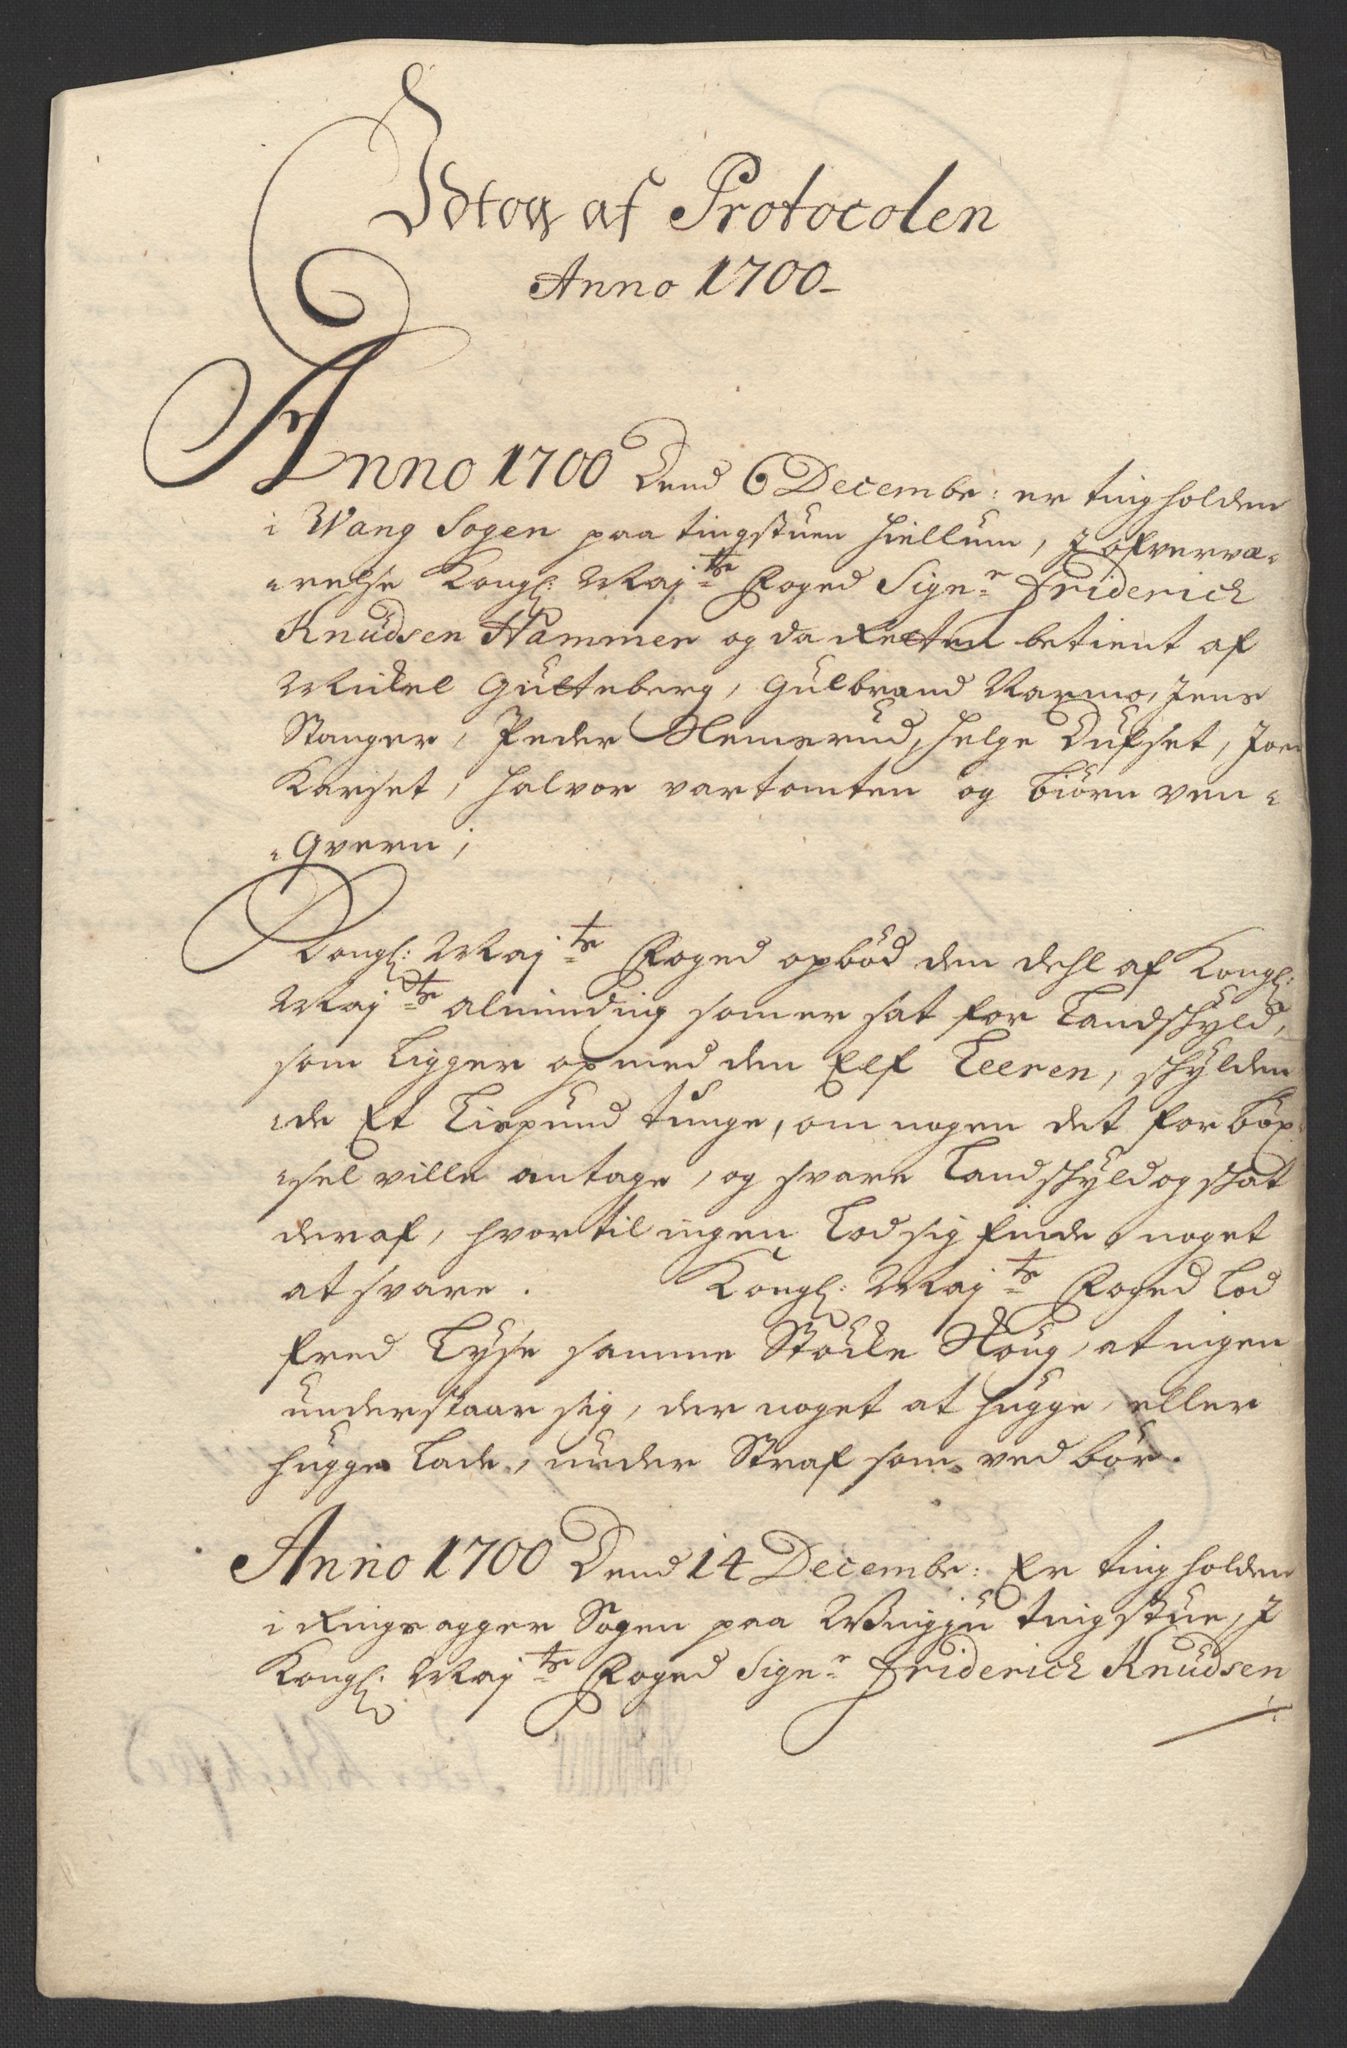 Udtog af Protocolen
Anno 1700
Anno 1700 Dend 6 Decembr: er ting holden
i Wang Sogen paa tingstuen Hiellum, J ofvervæ-
-relse Kongl: Maj:ts Foged Sign:r Friderich
Knudsen Hammer og da Retten betient af
Mickel Gulteberg, Gulbrand Narmo, Jens
Stanger, Peder Nemerud, Helge Dufset, Joen
Karset, Halvor vartomten og Biørn ven-
-qvern;
Kongl: Maj:ts Foged opbød den dehl af Kongl:
Maj:ts alminding som er sat for Landschyld,
som Ligger op med den Elf Leeren, schylden
-de Et Lispund tunge, om nogen det for böx-
-sel ville antage, og svare Landschyld og schat
deraf, hvortil ingen Lod sig finde noget
at svare. Kongl: Maj:ts Foged Lod
fred Lyse samme Støcke Skoug, at ingen
understaar sig, der noget at hugge, eller
hugge Lade, under Straf som ved bör.
Anno 1700 Dend 14 Decembr: Er ting holden
i Ringsagger Sogen paa tingstue, J
Kongl: Maj:ts Foged Sign:r Friderich Knudsen